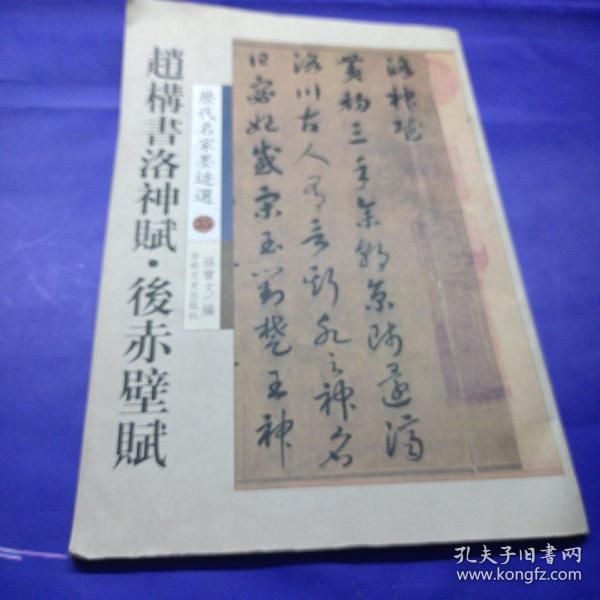 趙構書洛神賦·後赤壁賦
歷代名家墨迹選
孫寶文/編
吉林文史出版社
洛神賦
黃初三年余朝京師還濟
洛川古人有言斯水之神名
曰宓妃感宋玉對楚王神
孔夫子旧书网
www.kongfz.com